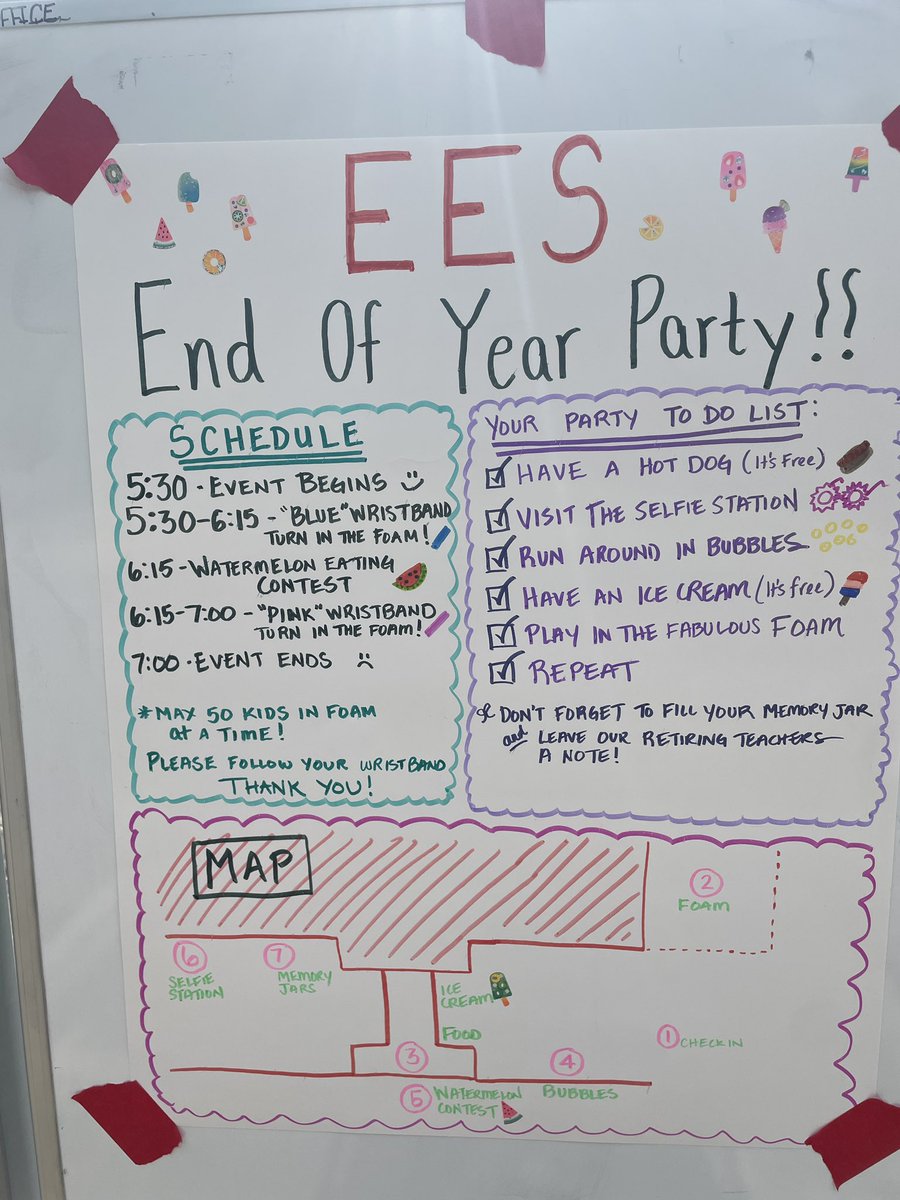 EES
End Of Year Party!!
SCHEDULE
5:30 - EVENT BEGINS
5:30-6:15 - "BLUE" WRISTBAND
TURN IN THE FOAM!
6:15 - WATERMELON EATING
CONTEST
6:15-7:00 - "PINK" WRISTBAND
TURN IN THE FOAM!
7:00 - EVENT ENDS
*MAX 50 KIDS IN FOAM
at A TIME!
PLEASE FOLLOW YOUR WRISTBAND
THANK YOU!
YOUR PARTY TO DO LIST:
HAVE A HOT DOG (It's Free)
VISIT THE SELFIE STATION
RUN AROUND IN BUBBLES
HAVE AN ICE CREAM (It's free)
PLAY IN THE FABULOUS FOAM
REPEAT
& DON'T FORGET TO FILL YOUR MEMORY JAR
and LEAVE OUR RETIRING TEACHERS
A NOTE!
MAP
2
FOAM
6
SELFIE
STATION
7
MEMORY
JARS
ICE
CREAM
FOOD
3
1 CHECK IN
4
BUBBLES
5 WATERMELON
CONTEST